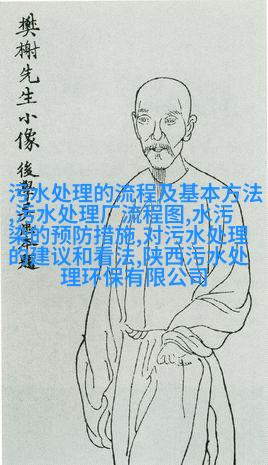 樊榭先生小像
後學
題
污水处理的流程及基本方法
,污水处理厂流程图,水污
染的预防措施,对污水处理
的建议和看法,陕西污水处
理环保有限公司